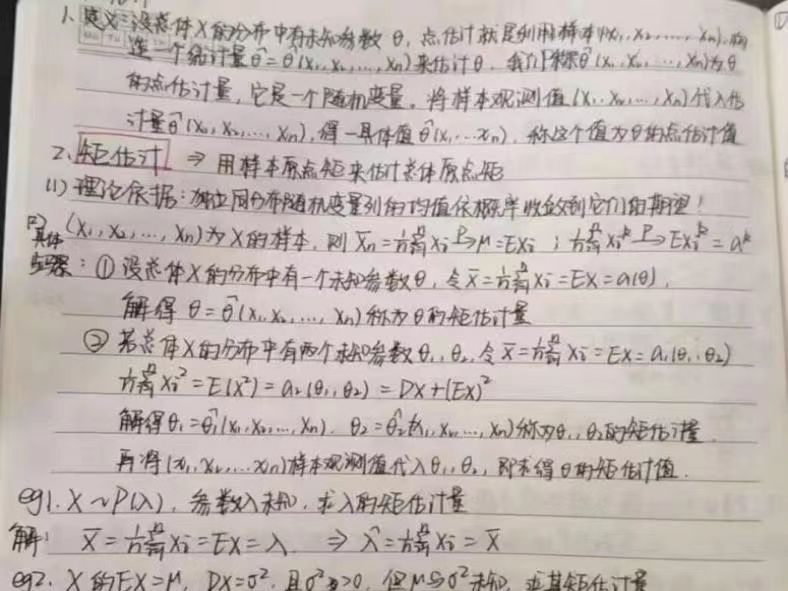 1、定义:设总体X的分布中有未知参数θ,点估计就是利用样本(x₁,x₂,…,xₙ),构
造一个统计量θ̂=θ̂(x₁,x₂,…,xₙ)来估计θ,我们称θ̂(x₁,x₂,…,xₙ)为θ
的点估计量,它是一个随机变量,将样本观测值(x₁,x₂,…,xₙ)代入估
计量θ̂(x₁,x₂,…,xₙ),得一具体值θ̂(x₁…xₙ),称这个值为θ的点估计值
2、矩估计 ⇒ 用样本原点矩来估计总体原点矩
(1)理论依据:独立同分布随机变量列的均值依概率收敛到它们的期望!
(x₁,x₂,…,xₙ)为X的样本,则 X̄ₙ=1/n Σⁿᵢ₌₁ Xᵢ →ᴾ μ=EXᵢ ; 1/n Σⁿᵢ₌₁ Xᵢᵏ →ᴾ EXᵢᵏ = aᵏ
具体
步骤:① 设总体X的分布中有一个未知参数θ,令 X̄=1/n Σⁿᵢ₌₁ Xᵢ=EX=a(θ),
解得 θ=θ̂(x₁,x₂,…,xₙ)称为θ的矩估计量
② 若总体X的分布中有两个未知参数θ₁,θ₂,令 X̄=1/n Σⁿᵢ₌₁ Xᵢ=EX=a₁(θ₁,θ₂)
1/n Σⁿᵢ₌₁ Xᵢ²=E(X²)=a₂(θ₁,θ₂)=DX+(EX)²
解得θ₁=θ̂₁(x₁,x₂,…,xₙ), θ₂=θ̂₂(x₁,x₂,…,xₙ)称为θ₁,θ₂的矩估计量.
再将(x₁,x₂,…xₙ)样本观测值代入θ₁,θ₂,即求得θ的矩估计值.
eg1. X~P(λ), 参数λ未知,求λ的矩估计量
解: X̄=1/n Σⁿᵢ₌₁ Xᵢ=EX=λ. ⇒ λ̂=1/n Σⁿᵢ₌₁ Xᵢ=X̄
eg2. X的EX=μ, DX=σ²,且σ²>0, 但μ与σ²未知,求其矩估计量